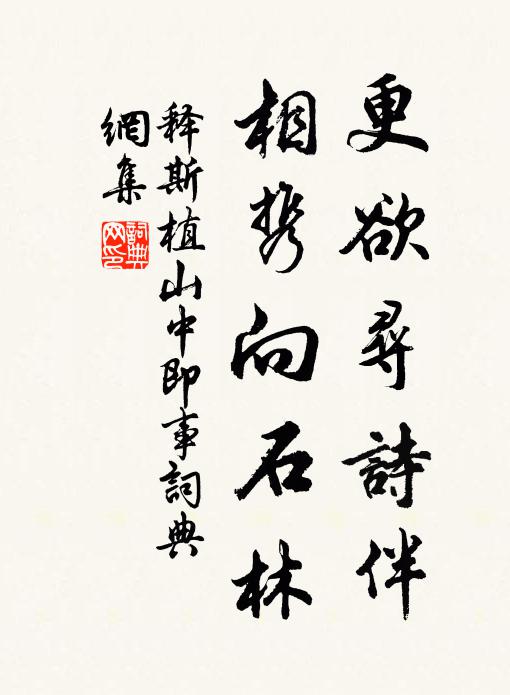 更欲尋詩伴
相携向石林
释斯植山中即事詞典
網集
詞典
网印